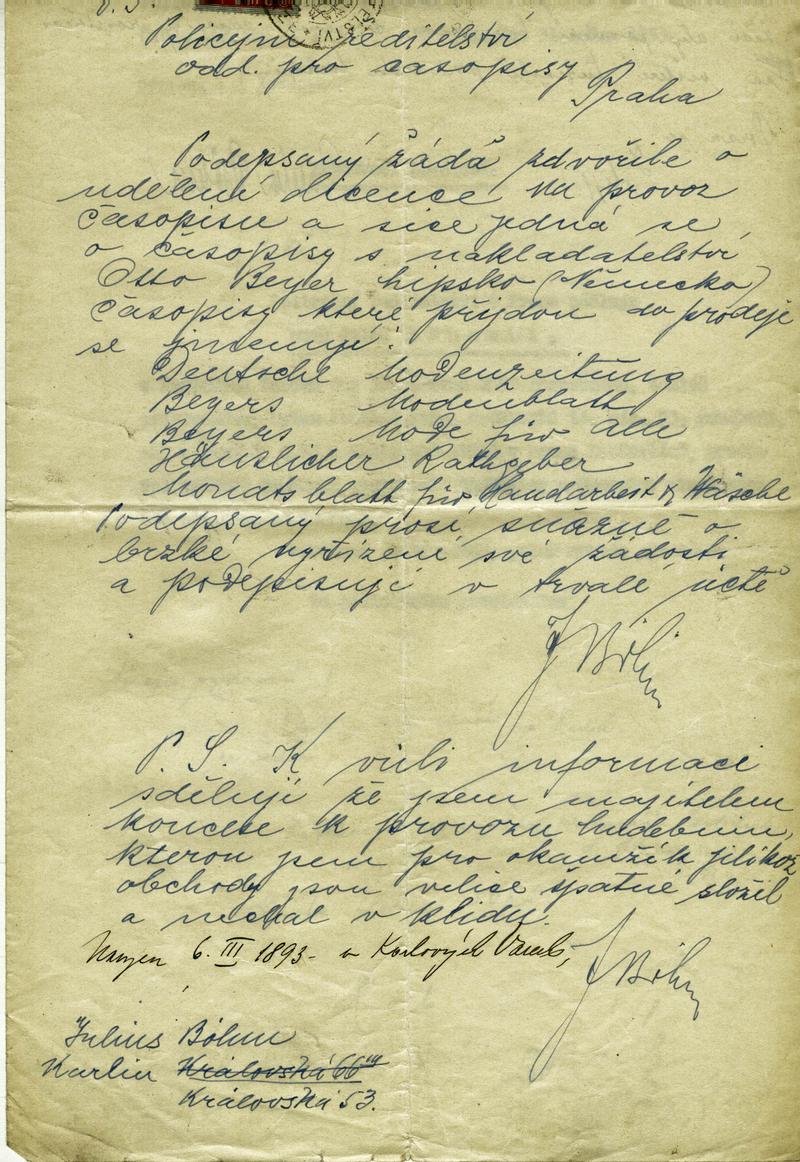 Policejní ředitelství
odd. pro časopisy
Praha
Podepsaný žádá zdvořile o
udělení licence na provoz
časopisu a sice jedná se
o časopisy s nakladatelství
Otto Beyer Lipsko (Německo)
Časopisy které přijdou do prodeje
se jmenují:
Deutsche Modenzeitung
Beyers Modenblatt
Beyers Mode für Alle
Häuslicher Rathgeber
Monatsblatt für Handarbeit & Wäsche
Podepsaný prosí snažně o
brzké vyřízení své žádosti
a podepisuji v trvalé úctě
J Böhm
P. S. K vůli informaci
sděluji že jsem majitelem
koncese k provozu hudebnin,
kterou jsem pro okamžik jelikož
obchody jsou velice špatné složil
a nechal v klidu.
6. III 1893 - v Karlových Varech,
J Böhm
Julius Böhm
Karlín Královská 66
Královská 53.